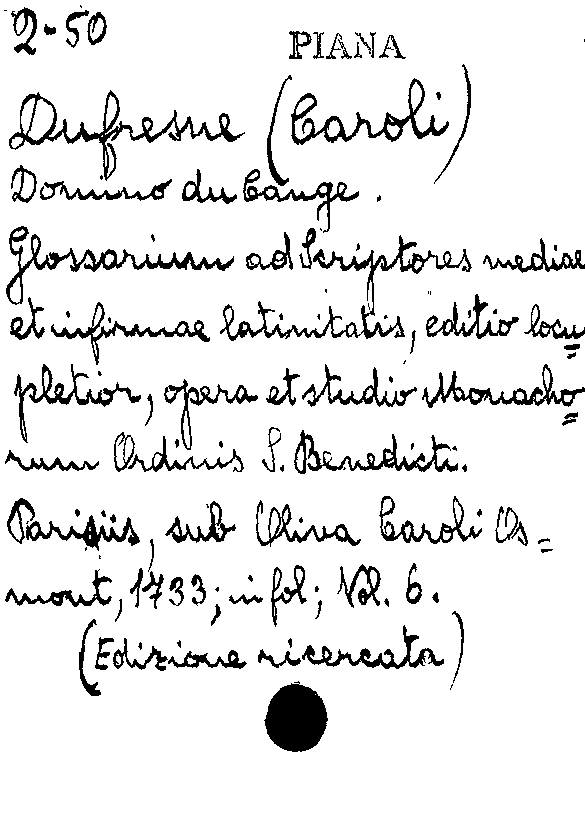 2-50
PIANA
Dufresne (Caroli)
Domino du Cange.
Glossarium ad Scriptores mediae
et infirmae latinitatis, editio locu=
pletior, opera et studio Monacho=
rum Ordinis S. Benedicti.
Parisiis, sub Oliva Caroli Os=
mont, 1733; in fol; Vol. 6.
(Edizione ricercata)